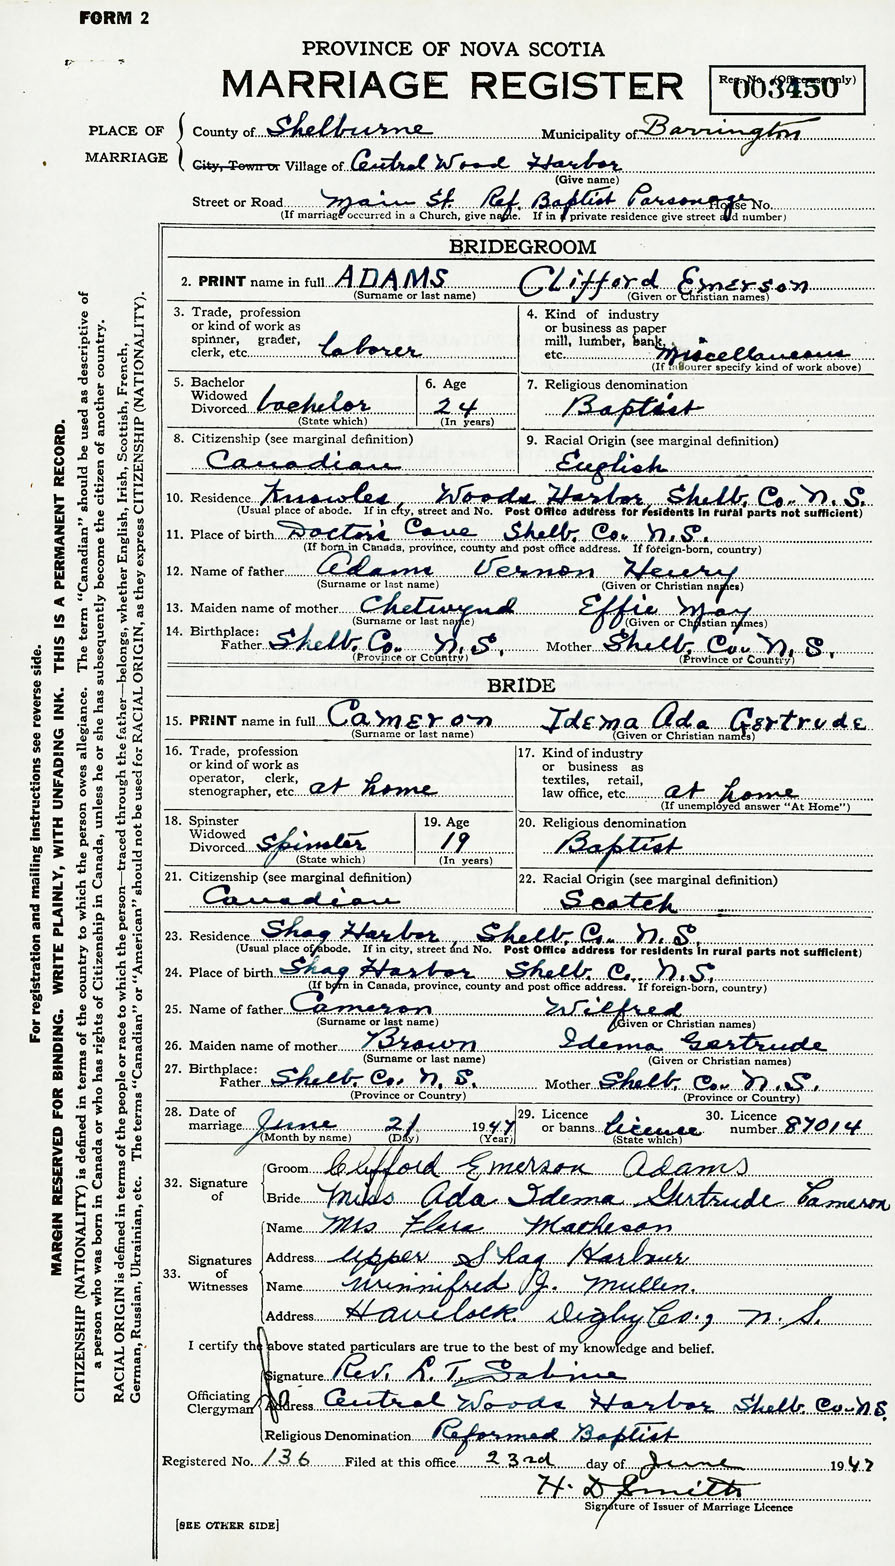 FORM 2
PROVINCE OF NOVA SCOTIA
MARRIAGE REGISTER
Reg. No. (Office use only)
003450
PLACE OF MARRIAGE
County of Shelburne Municipality of Barrington
City, Town or Village of Central Wood Harbor
(Give name)
Street or Road Main St. Ref. Baptist Parsonage House No.
(If marriage occurred in a Church, give name. If in a private residence give street and number)
BRIDEGROOM
2. PRINT name in full ADAMS Clifford Emerson
(Surname or last name) (Given or Christian names)
3. Trade, profession or kind of work as spinner, grader, clerk, etc. laborer
4. Kind of industry or business as paper mill, lumber, bank, etc. Miscellaneous
(If labourer specify kind of work above)
5. Bachelor Widowed Divorced bachelor
(State which)
6. Age 24
(In years)
7. Religious denomination Baptist
8. Citizenship (see marginal definition) Canadian
9. Racial Origin (see marginal definition) English
10. Residence Knowles, Woods Harbor Shelb. Co. N.S.
(Usual place of abode. If in city, street and No. Post Office address for residents in rural parts not sufficient)
11. Place of birth Doctor's Cove Shelb. Co. N.S.
(If born in Canada, province, county and post office address. If foreign-born, country)
12. Name of father Adams Vernon Henry
(Surname or last name) (Given or Christian names)
13. Maiden name of mother Chetwynd Effie May
(Surname or last name) (Given or Christian names)
14. Birthplace: Father Shelb. Co. N.S. Mother Shelb. Co. N.S.
(Province or Country) (Province or Country)
BRIDE
15. PRINT name in full Cameron Idema Ada Gertrude
(Surname or last name) (Given or Christian names)
16. Trade, profession or kind of work as operator, clerk, stenographer, etc. at home
17. Kind of industry or business as textiles, retail, law office, etc. at home
(If unemployed answer "At Home")
18. Spinster Widowed Divorced spinster
(State which)
19. Age 19
(In years)
20. Religious denomination Baptist
21. Citizenship (see marginal definition) Canadian
22. Racial Origin (see marginal definition) Scotch
23. Residence Shag Harbor, Shelb. Co. N.S.
(Usual place of abode. If in city, street and No. Post Office address for residents in rural parts not sufficient)
24. Place of birth Shag Harbor Shelb. Co. N.S.
(If born in Canada, province, county and post office address. If foreign-born, country)
25. Name of father Cameron Wilfred
(Surname or last name) (Given or Christian names)
26. Maiden name of mother Brown Idema Gertrude
(Surname or last name) (Given or Christian names)
27. Birthplace: Father Shelb. Co. N.S. Mother Shelb. Co. N.S.
(Province or Country) (Province or Country)
28. Date of marriage June 21 1947
(Month by name) (Day) (Year)
29. Licence or banns licence
(State which)
30. Licence number 87014
32. Signature of
Groom Clifford Emerson Adams
Bride Miss Ada Idema Gertrude Cameron
33. Signatures of Witnesses
Name Mrs Flora Matheson
Address Upper Shag Harbour
Name Winnifred J. Mullen.
Address Havelock. Digby Co., N.S.
I certify the above stated particulars are true to the best of my knowledge and belief.
Officiating Clergyman
Signature Rev. L. T. Sabine
Address Central Woods Harbor Shelb. Co. N.S.
Religious Denomination Reformed Baptist
Registered No. 136 Filed at this office 23rd day of June 1947
H. D Smith
Signature of Issuer of Marriage Licence
[SEE OTHER SIDE]
For registration and mailing instructions see reverse side.
MARGIN RESERVED FOR BINDING. WRITE PLAINLY, WITH UNFADING INK. THIS IS A PERMANENT RECORD.
CITIZENSHIP (NATIONALITY) is defined in terms of the country to which the person owes allegiance. The term "Canadian" should be used as descriptive of
a person who was born in Canada or who has rights of Citizenship in Canada, unless he or she has subsequently become the citizen of another country.
RACIAL ORIGIN is defined in terms of the people or race to which the person—traced through the father—belongs, whether English, Irish, Scottish, French,
German, Russian, Ukrainian, etc. The terms "Canadian" or "American" should not be used for RACIAL ORIGIN, as they express CITIZENSHIP (NATIONALITY).